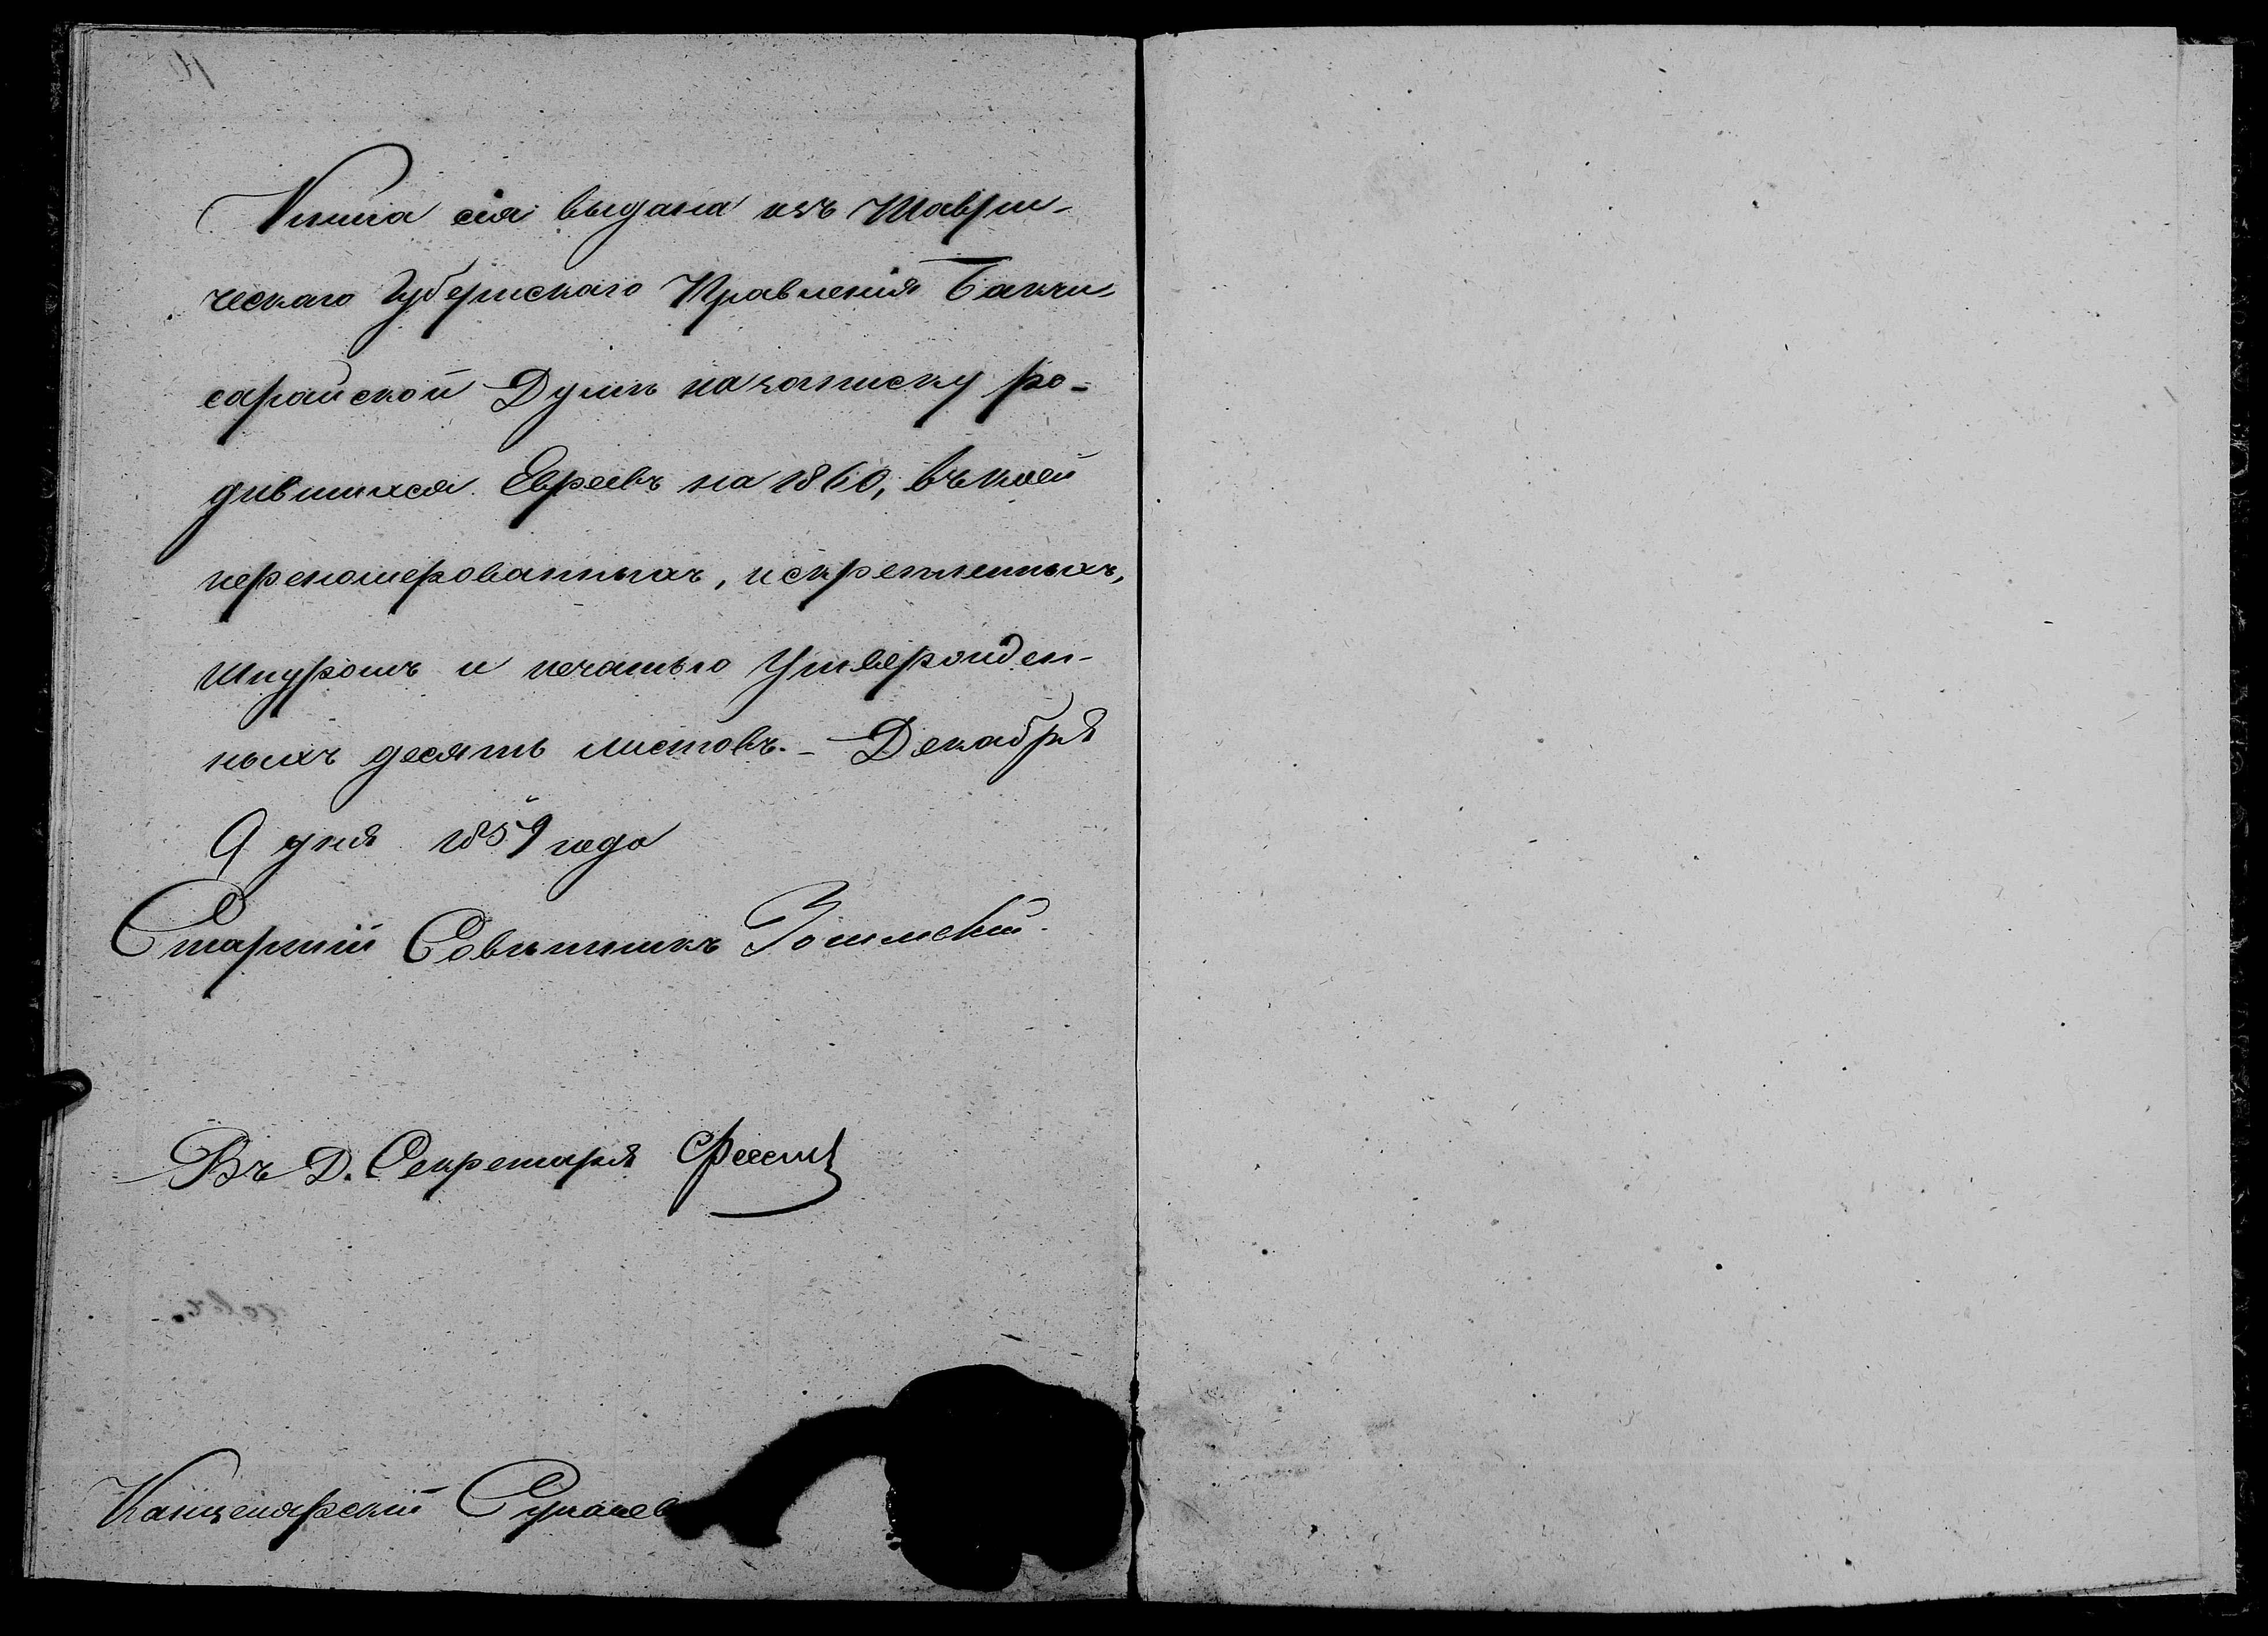 Книга сія выдана изъ Таври-
ческаго Губернскаго Правленія Бакчи-
сарайской Думѣ на записку ро-
дившихся Евреевъ на 1860, въ коей
переномерованныхъ, искрепленныхъ,
шнуромъ и печатью Утвержден-
ныхъ десять листовъ. - Декабря
9 дня 1859 года
Старшій Совѣтникъ
Въ Д. Секретаря
Канцелярскій